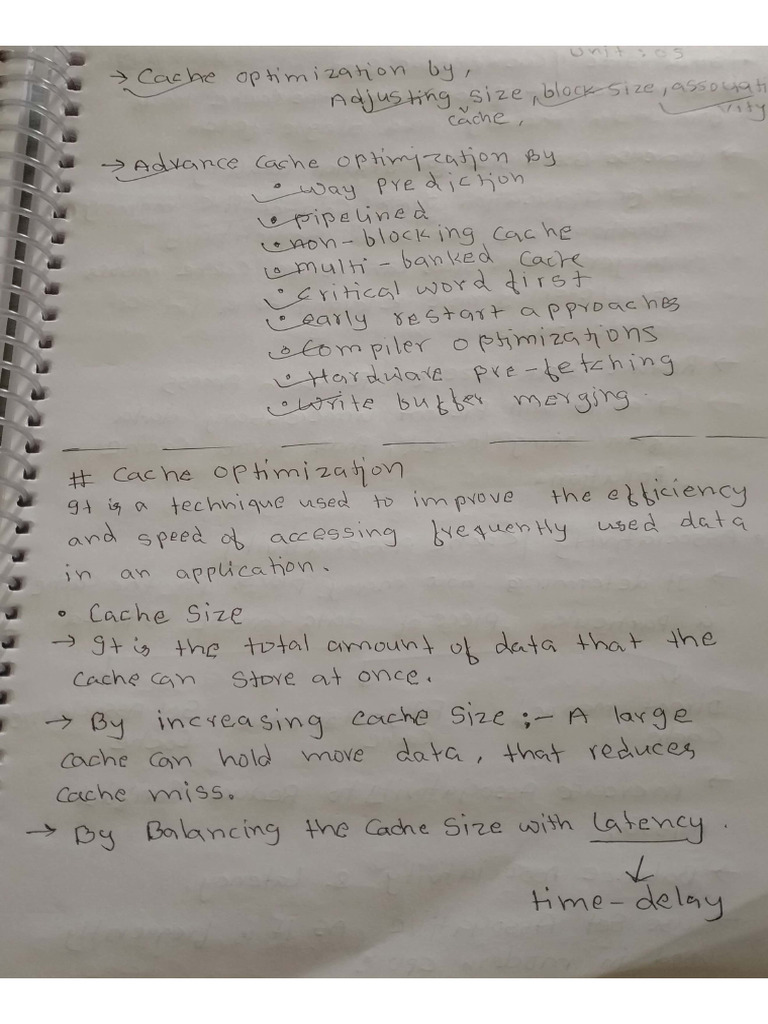 Unit : 03
→ Cache optimization by,
Adjusting size, block size, associati
cache,
vity
→ Advance cache optimization By
• way prediction
• pipelined
• non-blocking cache
• multi-banked cache
• critical word first
• early restart approaches
• compiler optimizations
• Hardware pre-fetching
• write buffer merging.
# Cache optimization
It is a technique used to improve the efficiency
and speed of accessing frequently used data
in an application.
• Cache Size
→ It is the total amount of data that the
cache can store at once.
→ By increasing cache size :- A large
cache can hold more data, that reduces
cache miss.
→ By Balancing the cache size with latency.
time-delay